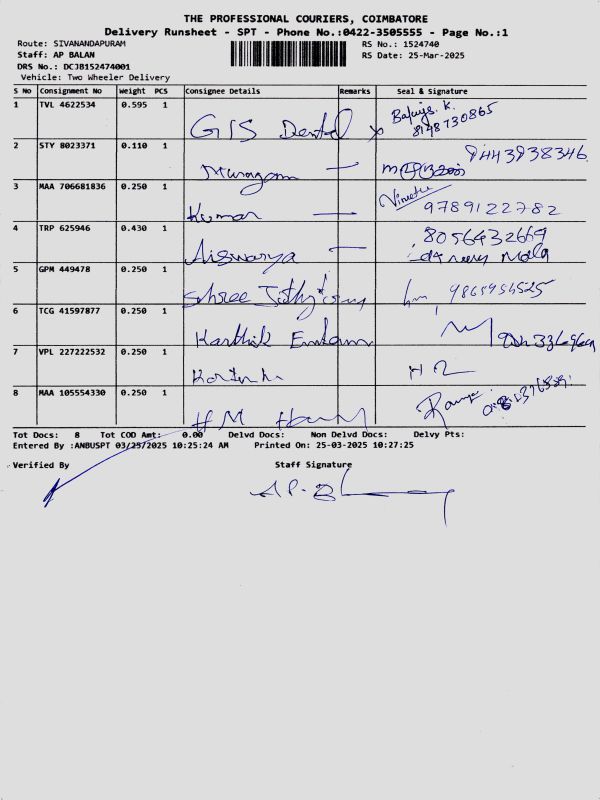 THE PROFESSIONAL COURIERS, COIMBATORE
Delivery Runsheet - SPT - Phone No.:0422-3505555 - Page No.:1
Route: SIVANANDAPURAM RS No.: 1524740
Staff: AP BALAN RS Date: 25-Mar-2025
DRS No.: DCJB152474001
Vehicle: Two Wheeler Delivery
S No Consignment No Weight PCS Consignee Details Remarks Seal & Signature
1 TVL 4622534 0.595 1 GIS Dental 8148730865
2 STY 8023371 0.110 1 Murugam
3 MAA 706681836 0.250 1 Kumar Vineetu 9789122782
4 TRP 625946 0.430 1 Aiswarya 8056432669
5 GPM 449478 0.250 1 Shree
6 TCG 41597877 0.250 1 Karthik
7 VPL 227222532 0.250 1
8 MAA 105554330 0.250 1 HM
Tot Docs: 8 Tot COD Amt: 0.00 Delvd Docs: Non Delvd Docs: Delvy Pts:
Entered By :ANBUSPT 03/25/2025 10:25:24 AM Printed On: 25-03-2025 10:27:25
Verified By Staff Signature